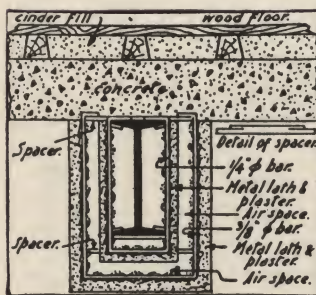 cinder fill wood floor.
concrete
Detail of spacer.
Spacer.
1/4" φ bar.
Metal lath &
plaster.
Air space.
3/8" φ bar.
Spacer.
Metal lath &
plaster.
Air space.